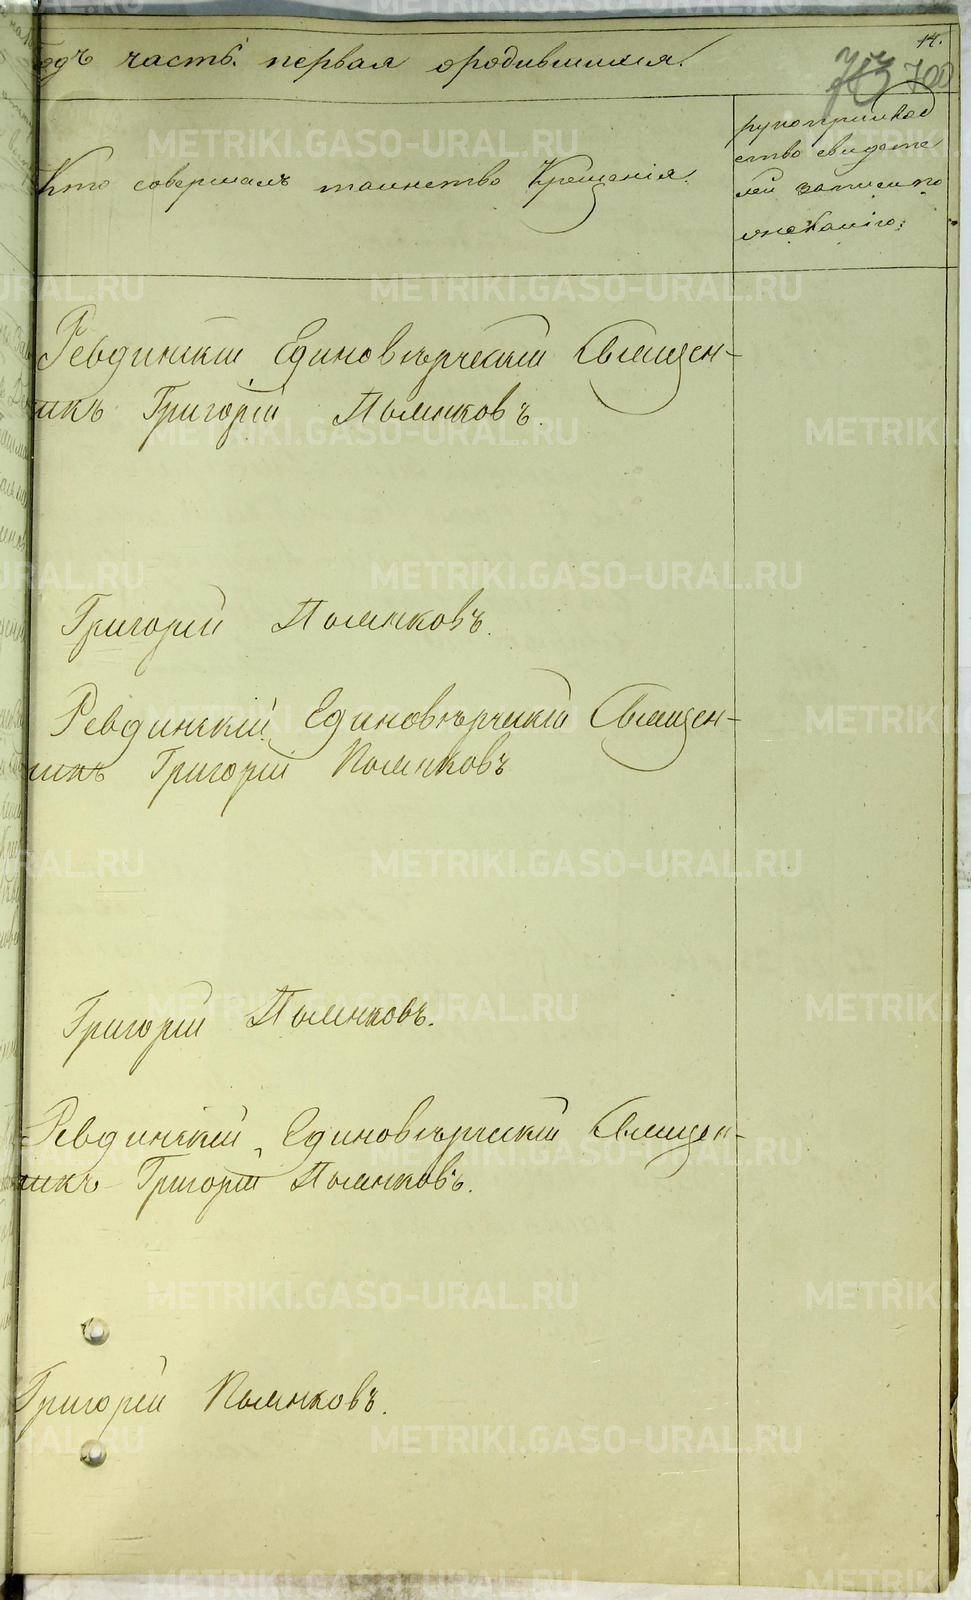 14.
годъ часть первая ородившихся.
700
Кто совершалъ таинство Крещенія.
рукоприклад
ство свидете
лей записи по
желанію:
Ревдинскій Единоверческій Священ-
икъ Григорій Поленковъ.
Григорій Поленковъ.
Ревдинскій Единоверческій Священ-
никъ Григорій Поленковъ
Григорій Поленковъ.
Ревдинскій Единоверческій Священ-
никъ Григорій Поленковъ.
Григорій Поленковъ.
METRIKI.GASO-URAL.RU